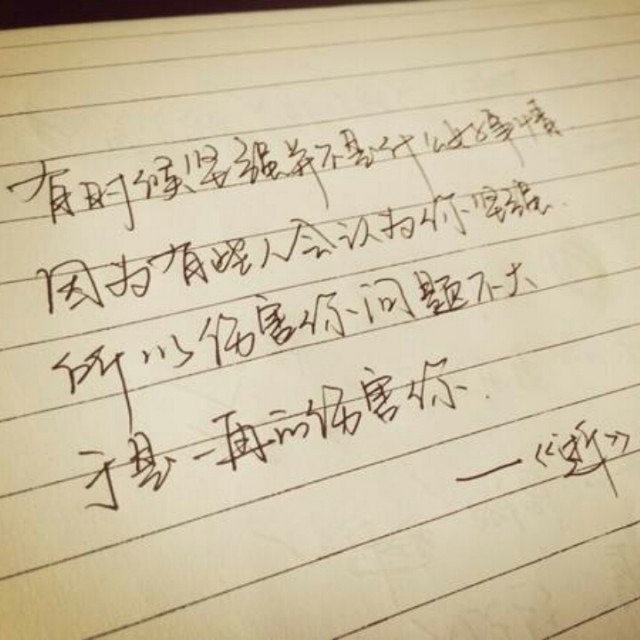 有时候坚强并不是什么好事情
因为有些人会认为你坚强.
所以伤害你问题不大
于是一再的伤害你.
——《逝》